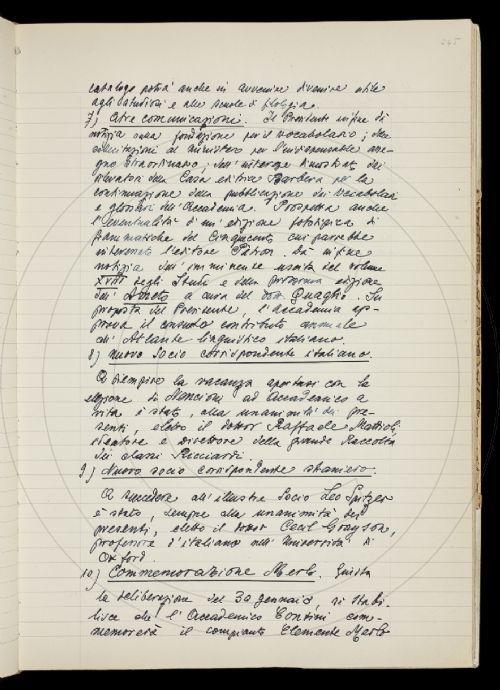 245
catalogo potrà anche in avvenire divenire utile
agli studiosi e alle scuole di filologia.
7) Altre comunicazioni. Il Presidente infine dà
notizia sulla fondazione per il vocabolario; delle
sollecitazioni al Ministero per l'indispensabile asse-
gno straordinario; dell'interesse dimostrato dai
rilevatari della Casa editrice Barbèra per la
continuazione della pubblicazione dei Vocabolari
e glossari dell'Accademia. Prospetta anche
l'eventualità d'un'edizione fototipica di
grammatiche del Cinquecento cui parrebbe
interessato l'editore Pàtron. Dà infine
notizia dell'imminente uscita del volume
XVIII degli Studi e della prossima edizione
dell' a cura del dott. Quaglio. Su
proposta del Presidente, l'Accademia ap-
prova il consueto contributo annuale
all'Atlante linguistico italiano.
8) Nuovo Socio corrispondente italiano.
A riempire la vacanza apertasi con la
elezione di Nencioni ad Accademico a
vita è stato, alla unanimità dei pre-
senti, eletto il dottor Raffaele Mattioli
ideatore e direttore della grande Raccolta
dei classici Ricciardi.
9) Nuovo socio corrispondente straniero.
A succedere all'illustre Socio Leo Spitzer
è stato, sempre alla unanimità dei
presenti, eletto il dottor Cecil Grayson,
professore d'italiano nell'Università di
Oxford
10) Commemorazione Merlo. Giusta
la deliberazione del 30 gennaio si stabi-
lisce che l'Accademico Contini com-
memorerà il compianto Clemente Merlo